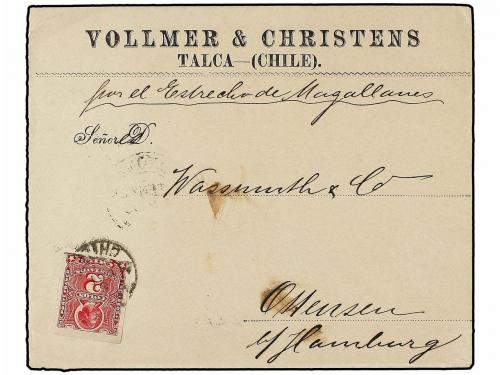 VOLLMER & CHRISTENS
TALCA—(CHILE).
por el Estrecho de Magallanes
Señor D.
Wassmuth & Co
Ottensen
b/Hamburg
5